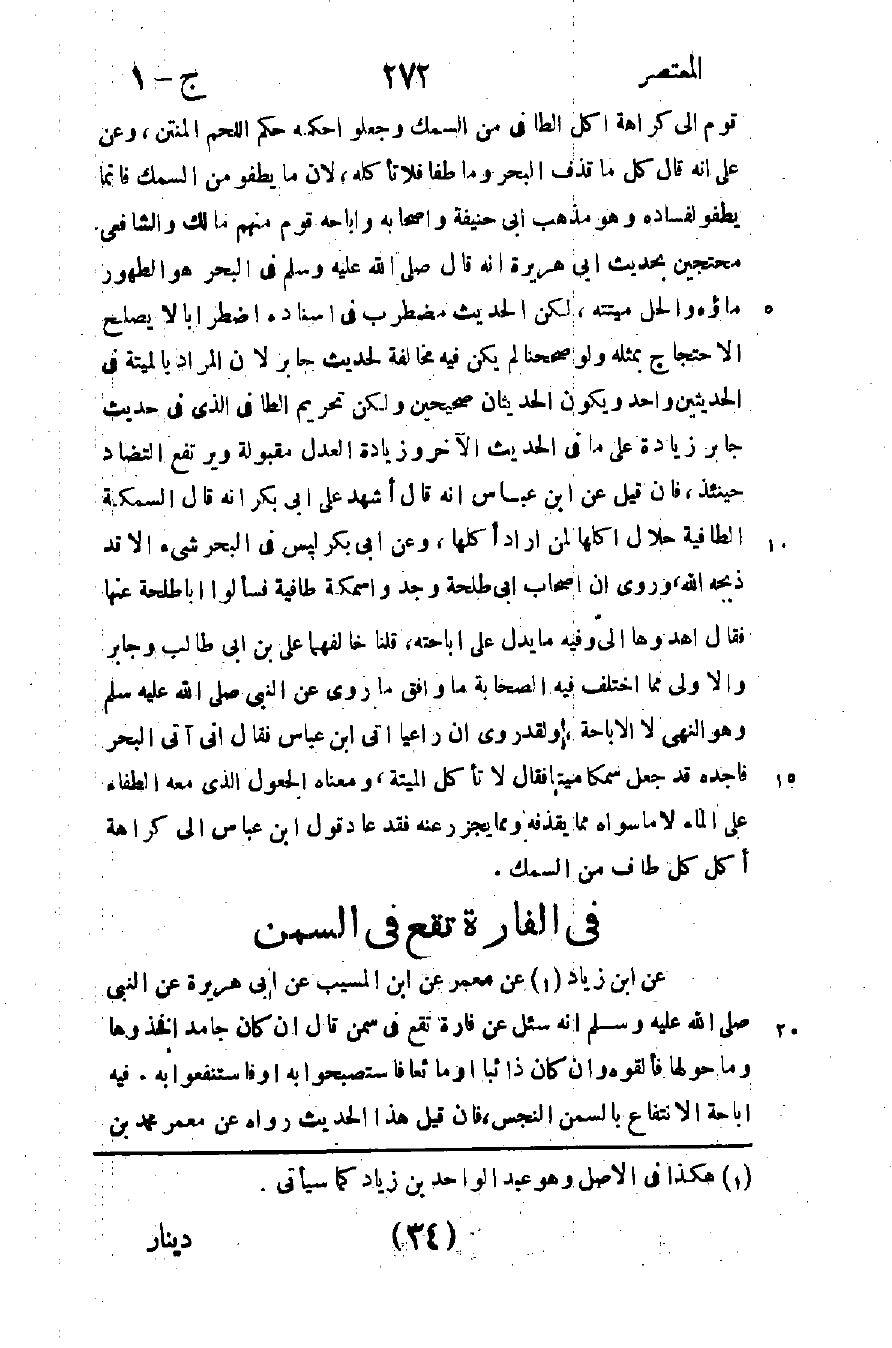 المعتصر ٢٧٢ ج - ١
قوم الى كراهة اكل الطافى من السمك وجعلوا حكمه حكم اللحم المنتن، وعن
على انه قال كل ما قذف البحر وما طفا فلا تأكله، لان ما يطفو من السمك فانما
يطفو لفساده وهو مذهب ابى حنيفة واصحابه واباحه قوم منهم مالك والشافعى
محتجين بحديث ابى هريرة انه قال صلى الله عليه وسلم فى البحر هو الطهور
ماؤه والحل ميتته، لكن الحديث مضطرب فى اسناده اضطرابا لا يصلح ٥
الاحتجاج بمثله ولو صححنا لم يكن فيه مخالفة لحديث جابر لان المراد بالميتة فى
الحديثين واحد ويكون الحديثان صحيحين ولكن تحريم الطافى الذى فى حديث
جابر زيادة على ما فى الحديث الآخر وزيادة العدل مقبولة ويرتفع التضاد
حينئذ، فان قيل عن ابن عباس انه قال أشهد على ابى بكر انه قال السمكة
الطافية حلال اكلها لمن اراد أكلها، وعن ابى بكر ليس فى البحر شىء الا قد ١٠
ذبحه الله، وروى ان اصحاب ابى طلحة وجدوا سمكة طافية فسألوا اباطلحة عنها
فقال اهدوها الىّ وفيه ما يدل على اباحته، قلنا خالفهما على بن ابى طالب وجابر
والاولى مما اختلف فيه الصحابة ما وافق ما روى عن النبى صلى الله عليه سلم
وهو النهى لا الاباحة، ولقد روى ان راعيا اتى ابن عباس فقال انى آتى البحر
فاجده قد جعل سمكا ميتا فقال لا تأكل الميتة، ومعناه الجعول الذى معه الطفاء ١٥
على الماء لا ما سواه مما يقذفه ومما يجزر عنه فقد عاد قول ابن عباس الى كراهة
أكل كل طاف من السمك .
فى الفارة تقع فى السمن
عن ابن زياد (١) عن معمر عن ابن المسيب عن ابى هريرة عن النبى
صلى الله عليه وسلم انه سئل عن فارة تقع فى سمن قال ان كان جامدا فخذوها ٢٠
وما حولها فألقوه وان كان ذائبا او مائعا فاستصبحوا به او فاستنفعوا به . فيه
اباحة الانتفاع بالسمن النجس، فان قيل هذا الحديث رواه عن معمر محمد بن
(١) هكذا فى الاصل وهو عبد الواحد بن زياد كما سيأتى .
(٣٤) دينار